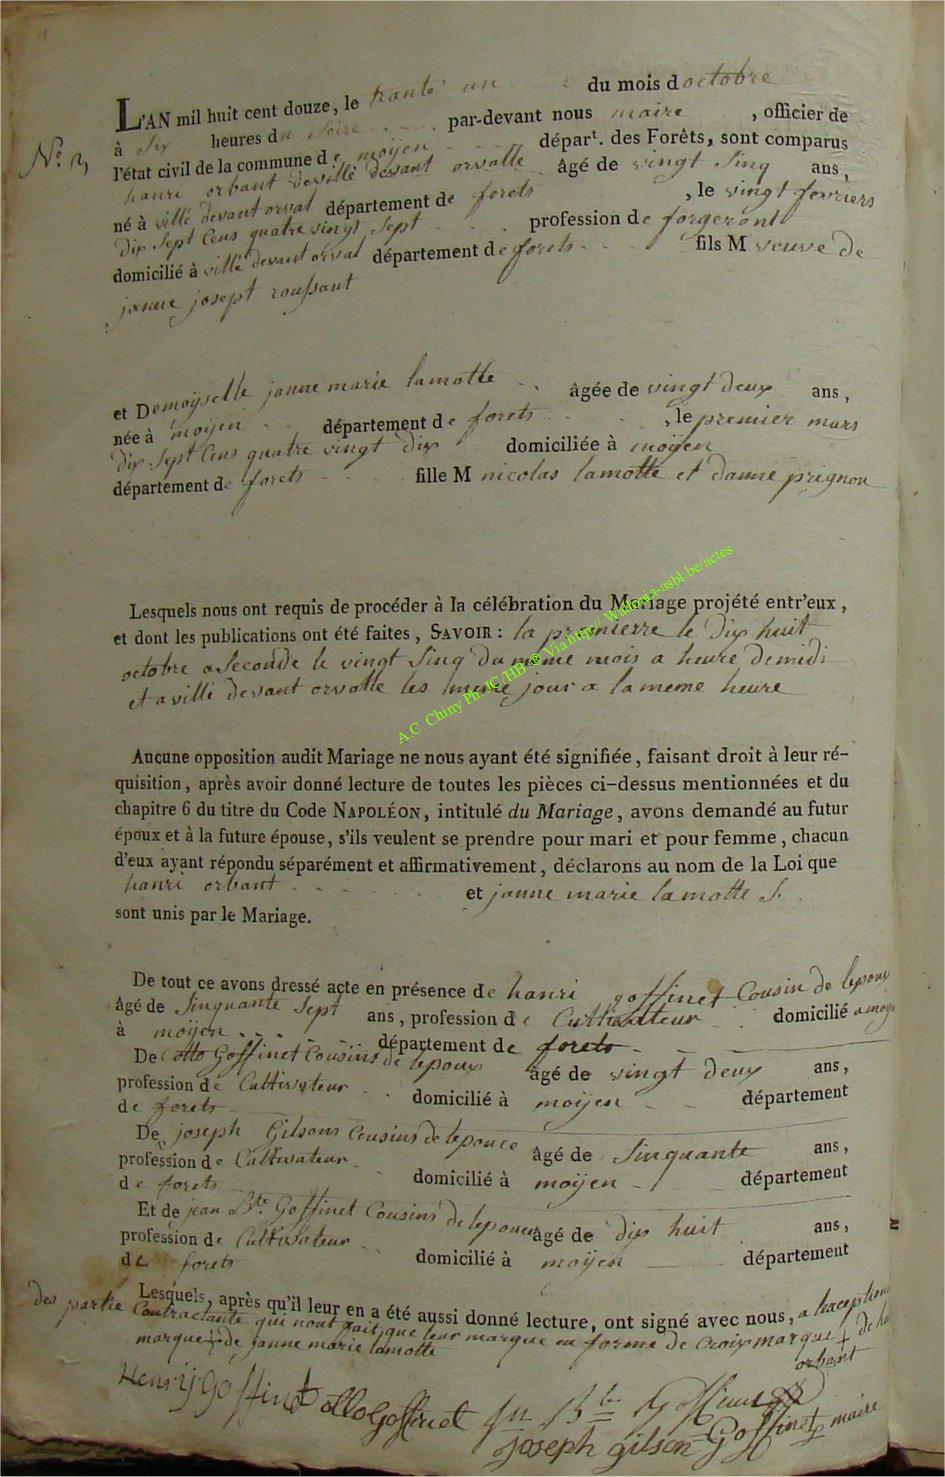 N.° 3
L'AN mil huit cent douze, le trante un du mois doctobre
à Six heures du Soire par-devant nous maire , officier de
l'état civil de la commune de moyen départ. des Forêts, sont comparus
hanri orbant deville devant orvalle âgé de vingt Sinq ans,
né à ville devant orval département de forets , le vingt fevriers
dix Sept Cens quatre vingt Sept profession de forgeront
domicilié à ville devant orval département de forets fils M veuve de
janne josept roussant
et Demoyselle janne marie lamotte âgée de vingt deux ans,
née à moyen département de forets , le premier mars
dix Sept Cens quatre vingt dix domiciliée à moyen
département de forets fille M nicolas lamotte et danne prignon
Lesquels nous ont requis de procéder à la célébration du Mariage projété entr'eux,
et dont les publications ont été faites, SAVOIR : la premierre le Dix huit
octobre a Seconde le vingt Sinq du même mois a heure demidi
et a ville devant orvalle les meme jour a la meme heure
A.C. Chiny Ph. JC/HB © Via http:// Wallonia-asbl.be/actes
Aucune opposition audit Mariage ne nous ayant été signifiée, faisant droit à leur ré-
quisition, après avoir donné lecture de toutes les pièces ci-dessus mentionnées et du
chapitre 6 du titre du Code NAPOLÉON, intitulé du Mariage, avons demandé au futur
époux et à la future épouse, s'ils veulent se prendre pour mari et pour femme, chacun
d'eux ayant répondu séparément et affirmativement, déclarons au nom de la Loi que
hanri orbant et janne marie lamotte
sont unis par le Mariage.
De tout ce avons dressé acte en présence de hanri goffinet Cousin de lepoux
âgé de Sinquante Sept ans, profession de Cultivateur domicilié a moyen
à moyen département de forets
De otto Goffinet Cousins de lepoux âgé de vingt deux ans,
profession de Cultivateur domicilié à moyen département
de forets
De joseph Gilsons Cousins de lepouce âgé de Sinquante ans,
profession de Cultivateur domicilié à moyen département
de forets
Et de jean Bte. Goffinet Cousins de lepouce âgé de dix huit ans,
profession de Cultivateur domicilié à moyen département
de forets
Lesquels, après qu'il leur en a été aussi donné lecture, ont signé avec nous, a lexception
des partie Contractante qui nont fait que leur marque en forme de Croix marque + de
marque + de janne marie lamotte orbant
Henrij Goffinet otto Goffinet jn Bte Goffinet
joseph gilson Goffinet maire